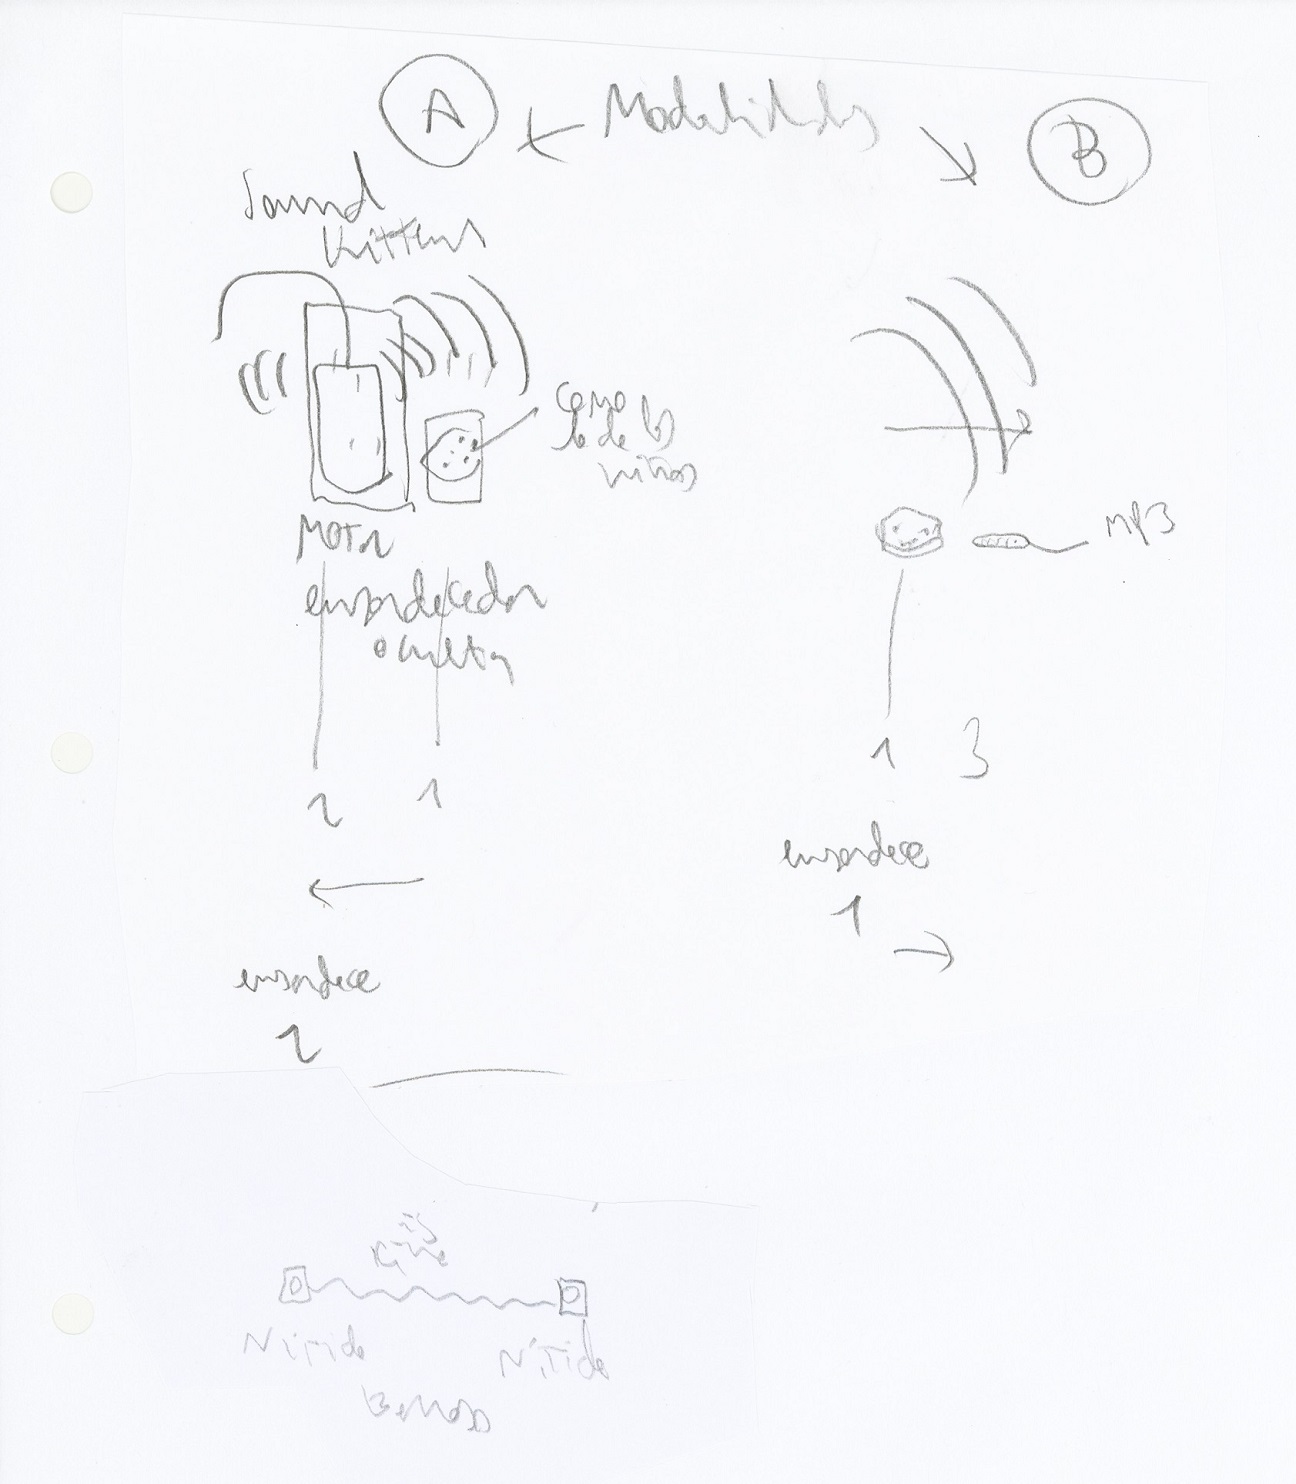 A
Modalidades
B
Sound
Kittens
como
lo de los
niños
MOTN
mp3
ensordecedor
ocultas
2
1
1
3
ensordece
1
ensordece
2
Nítido
Nítido
Borroso